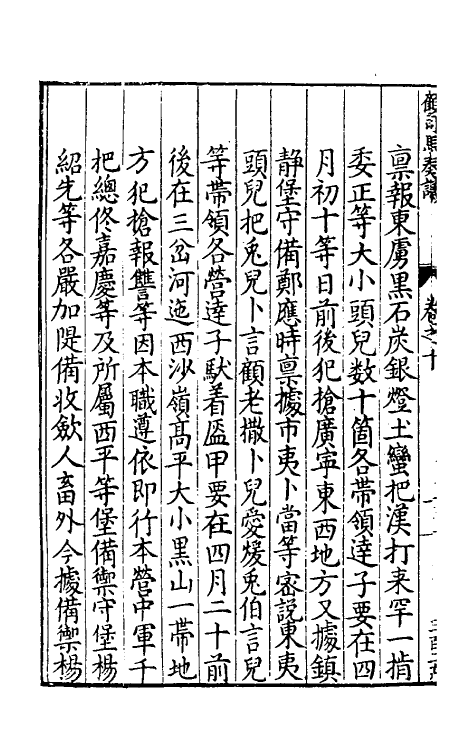 顧司馬奏議
卷之十
禀報東虜黑石炭銀燈土蠻把漢打来罕一揹
委正等大小頭兒数十箇各帶領達子要在四
月初十等日前後犯搶廣寧東西地方又據鎮
静堡守備鄭應時禀據市夷卜當等密説東夷
頭兒把兎兒卜言顧老撒卜兒愛煖兎伯言兒
等帶領各營達子馱着盔甲要在四月二十前
後在三岔河迤西沙嶺髙平大小黒山一帶地
方犯搶報讐等因本職遵依即行本營中軍千
把總佟嘉慶等及所屬西平等堡備禦守堡楊
紹先等各嚴加隄備收歛人畜外今據備禦楊